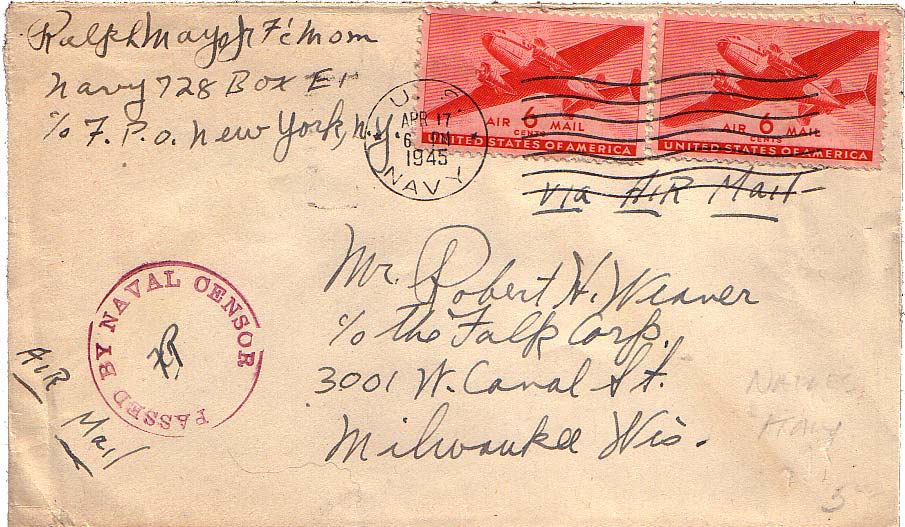 Ralph Mayo Jr F1c Mom
Navy 728 Box E1
c/o F.P.O. New York, N.Y.
U.S.
APR 17
6 PM
1945
NAVY
AIR 6 MAIL
CENTS
UNITED STATES OF AMERICA
AIR 6 MAIL
CENTS
UNITED STATES OF AMERICA
via AIR Mail
Mr. Robert H. Weaver
c/o the Falk Corp.
3001 W. Canal St.
Milwaukee Wis.
PASSED BY NAVAL CENSOR
AIR
Mail
NAPLES,
ITALY
5